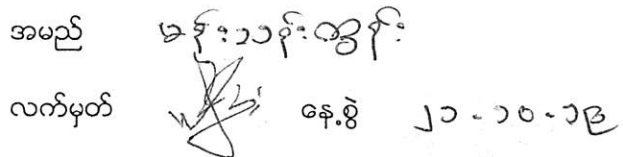 အမည် မန်းသန်းထွန်း
လက်မှတ် နေ့စွဲ ၂၁-၁၀-၁၉